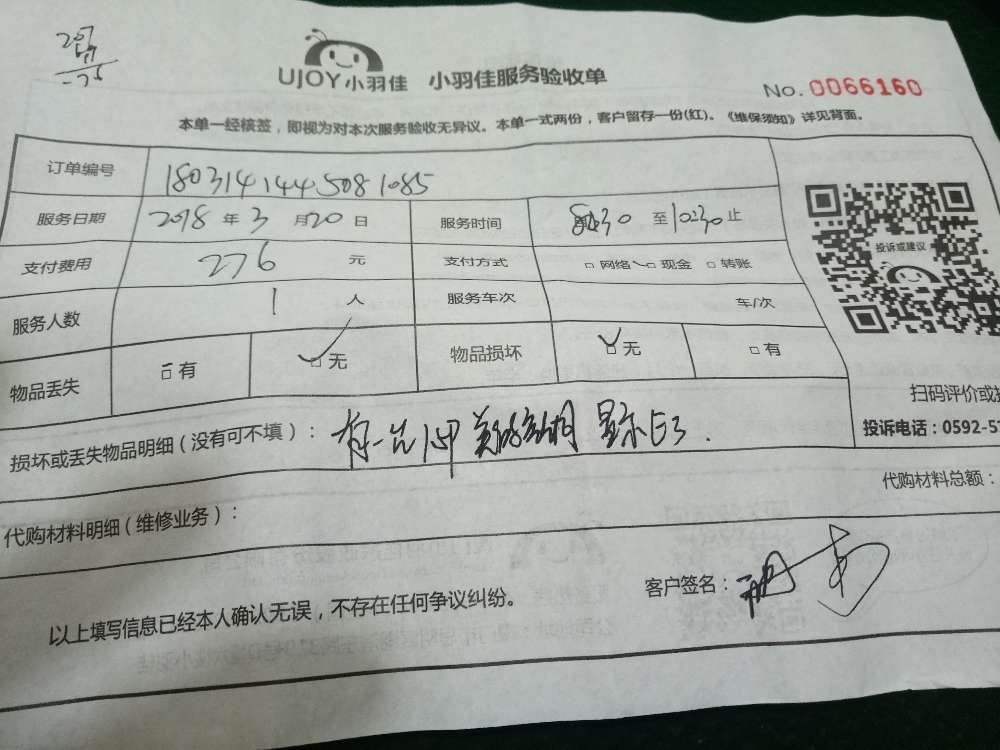 207
UJOY小羽佳 小羽佳服务验收单
No.0066160
本单一经核签，即视为对本次服务验收无异议。本单一式两份，客户留存一份(红)。《维保须知》详见背面。
订单编号 180314144508 1085
服务日期 2018 年 3 月 20 日 服务时间 8:30 至 10:30 止
投诉或建议
支付费用 276 元 支付方式 □ 网络 □ 现金 □ 转账
服务人数 1 人 服务车次 车/次
物品丢失 □ 有 □ 无 物品损坏 □ 无 □ 有
扫码评价或
投诉电话：0592-5
损坏或丢失物品明细（没有可不填）： 有一台1P 美的空调 显示E3.
代购材料总额：
代购材料明细（维修业务）：
客户签名：
以上填写信息已经本人确认无误，不存在任何争议纠纷。